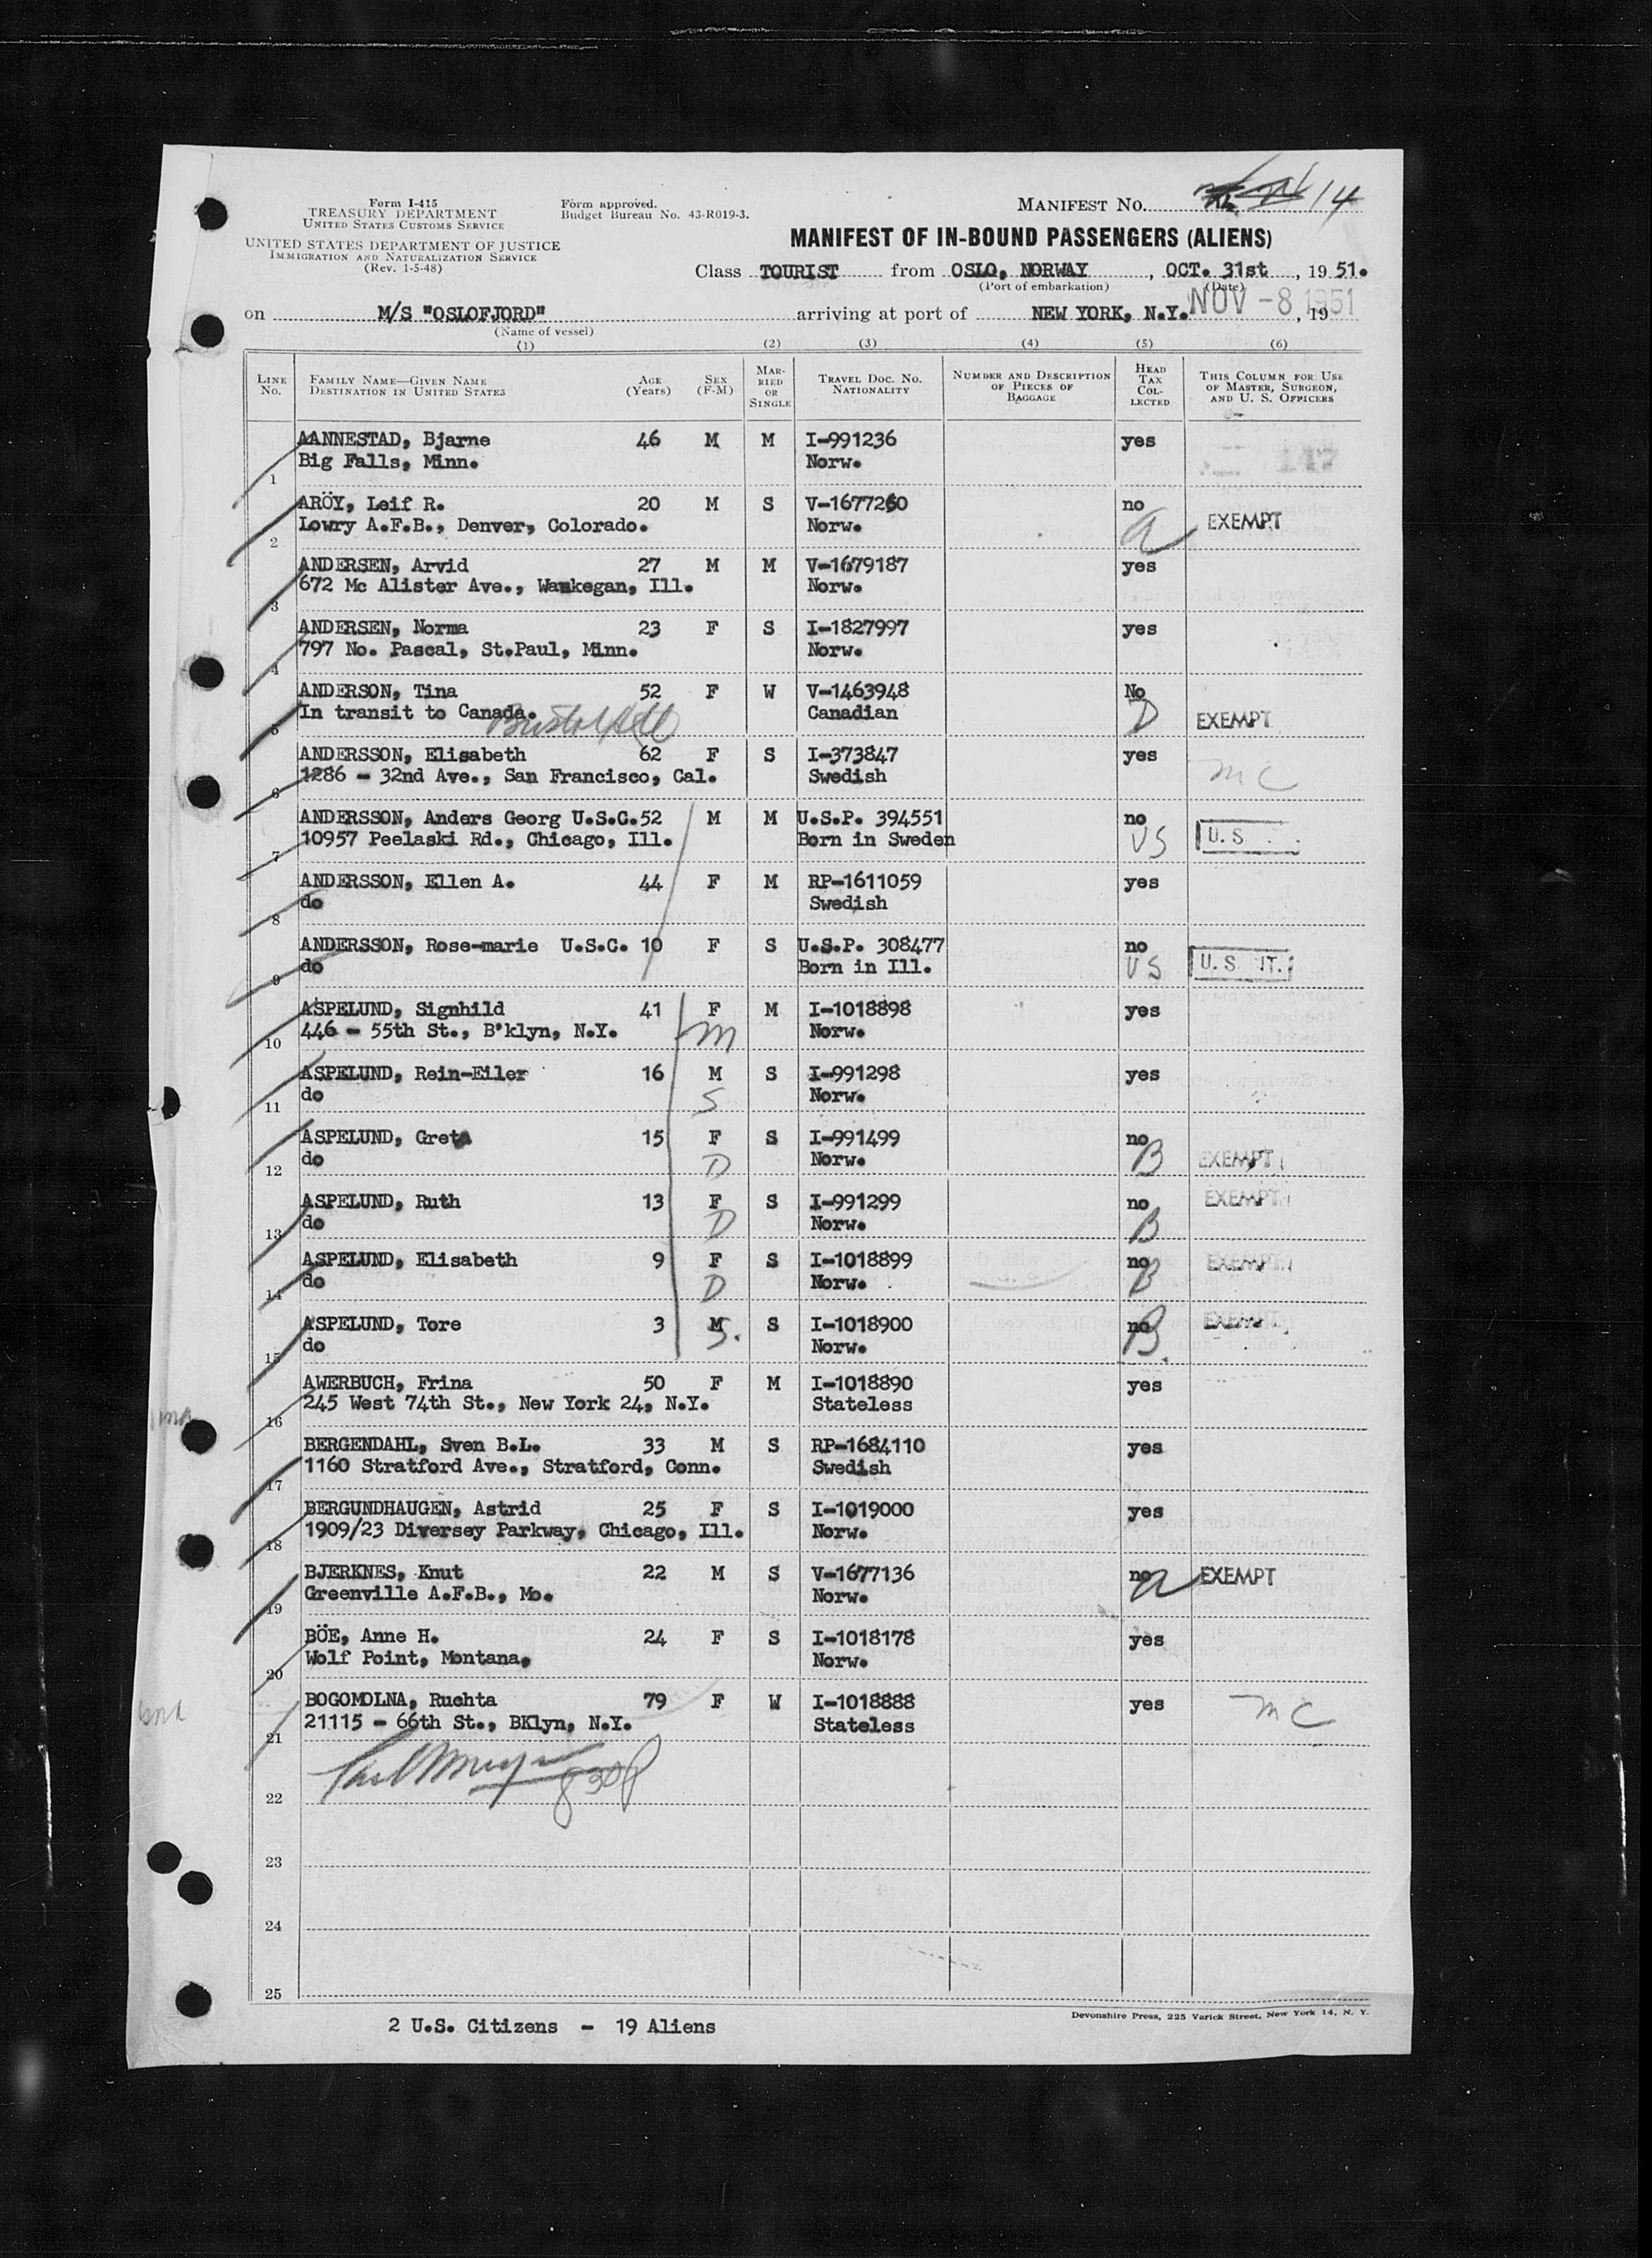 Form I-415
TREASURY DEPARTMENT
UNITED STATES CUSTOMS SERVICE
UNITED STATES DEPARTMENT OF JUSTICE
IMMIGRATION AND NATURALIZATION SERVICE
(Rev. 1-5-48)
Form approved.
Budget Bureau No. 43-R019-3.
MANIFEST NO. 14
MANIFEST OF IN-BOUND PASSENGERS (ALIENS)
Class TOURIST from OSLO, NORWAY, OCT. 31st, 1951.
(Port of embarkation) (Date)
on M/S "OSLOFJORD" arriving at port of NEW YORK, N.Y. NOV -8 1951, 19
(Name of vessel)
(1) (2) (3) (4) (5) (6)
LINE NO. FAMILY NAME—GIVEN NAME DESTINATION IN UNITED STATES AGE (Years) SEX (F-M) MARRIED OR SINGLE TRAVEL DOC. NO. NATIONALITY NUMBER AND DESCRIPTION OF PIECES OF BAGGAGE HEAD TAX COLLECTED THIS COLUMN FOR USE OF MASTER, SURGEON, AND U. S. OFFICERS
AANNESTAD, Bjarne 46 M M I-991236 yes
1 Big Falls, Minn. Norw.
ARÖY, Leif R. 20 M S V-1677260 no
2 Lowry A.F.B., Denver, Colorado. Norw. a EXEMPT
ANDERSEN, Arvid 27 M M V-1679187 yes
3 672 Mc Alister Ave., Waukegan, Ill. Norw.
ANDERSEN, Norma 23 F S I-1827997 yes
4 797 No. Pascal, St.Paul, Minn. Norw.
ANDERSON, Tina 52 F W V-1463948 No
5 In transit to Canada. Canadian D EXEMPT
ANDERSSON, Elisabeth 62 F S I-373847 yes
6 1286 - 32nd Ave., San Francisco, Cal. Swedish MC
ANDERSSON, Anders Georg U.S.C. 52 M M U.S.P. 394551 no
7 10957 Peelaski Rd., Chicago, Ill. Born in Sweden US U. S
ANDERSSON, Ellen A. 44 F M RP-1611059 yes
8 do Swedish
ANDERSSON, Rose-marie U.S.C. 10 F S U.S.P. 308477 no
9 do Born in Ill. US U. S IT.
ASPELUND, Signhild 41 F M I-1018898 yes
10 446 - 55th St., B'klyn, N.Y. m Norw.
ASPELUND, Rein-Eiler 16 M S I-991298 yes
11 do S Norw.
ASPELUND, Greta 15 F S I-991499 no
12 do D Norw. B EXEMPT
ASPELUND, Ruth 13 F S I-991299 no EXEMPT
13 do D Norw. B
ASPELUND, Elisabeth 9 F S I-1018899 no EXEMPT
14 do D Norw. B
ASPELUND, Tore 3 M S I-1018900 no EXEMPT
15 do S. Norw. B.
AWERBUCH, Frina 50 F M I-1018890 yes
16 245 West 74th St., New York 24, N.Y. Stateless
BERGENDAHL, Sven B.L. 33 M S RP-1684110 yes
17 1160 Stratford Ave., Stratford, Conn. Swedish
BERGUNDHAUGEN, Astrid 25 F S I-1019000 yes
18 1909/23 Diversey Parkway, Chicago, Ill. Norw.
BJERKNES, Knut 22 M S V-1677136 no a EXEMPT
19 Greenville A.F.B., Mo. Norw.
BÖE, Anne H. 24 F S I-1018178 yes
20 Wolf Point, Montana, Norw.
BOGOMOLNA, Ruchta 79 F W I-1018888 yes MC
21 21115 - 66th St., BKlyn, N.Y. Stateless
22
23
24
25
Devonshire Press, 225 Varick Street, New York 14, N. Y.
2 U.S. Citizens - 19 Aliens